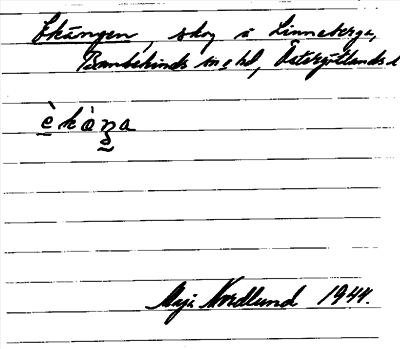 Ekängen, skog å Linneberga,
Bankekinds sn o hd, Östergötlands l
è k à ŋ a
Maja Nordlund 1944.